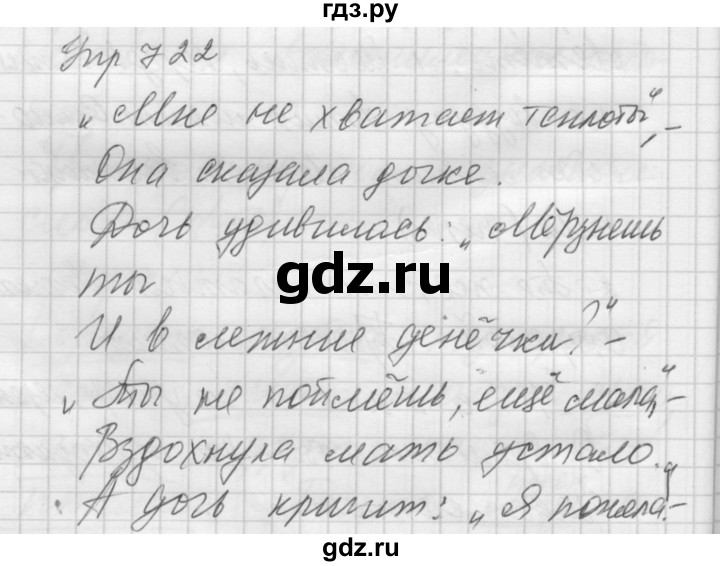 гдз.ру
Упр 722
„Мне не хватает теплоты“, –
Она сказала дочке.
Дочь удивилась: „Мёрзнешь
ты
gdz.ru
И в летние денёчки?“ –
„Ты не поймёшь, ещё мала“, –
Вздохнула мать устало.
А дочь кричит: „Я поняла!“ –
gdz.ru